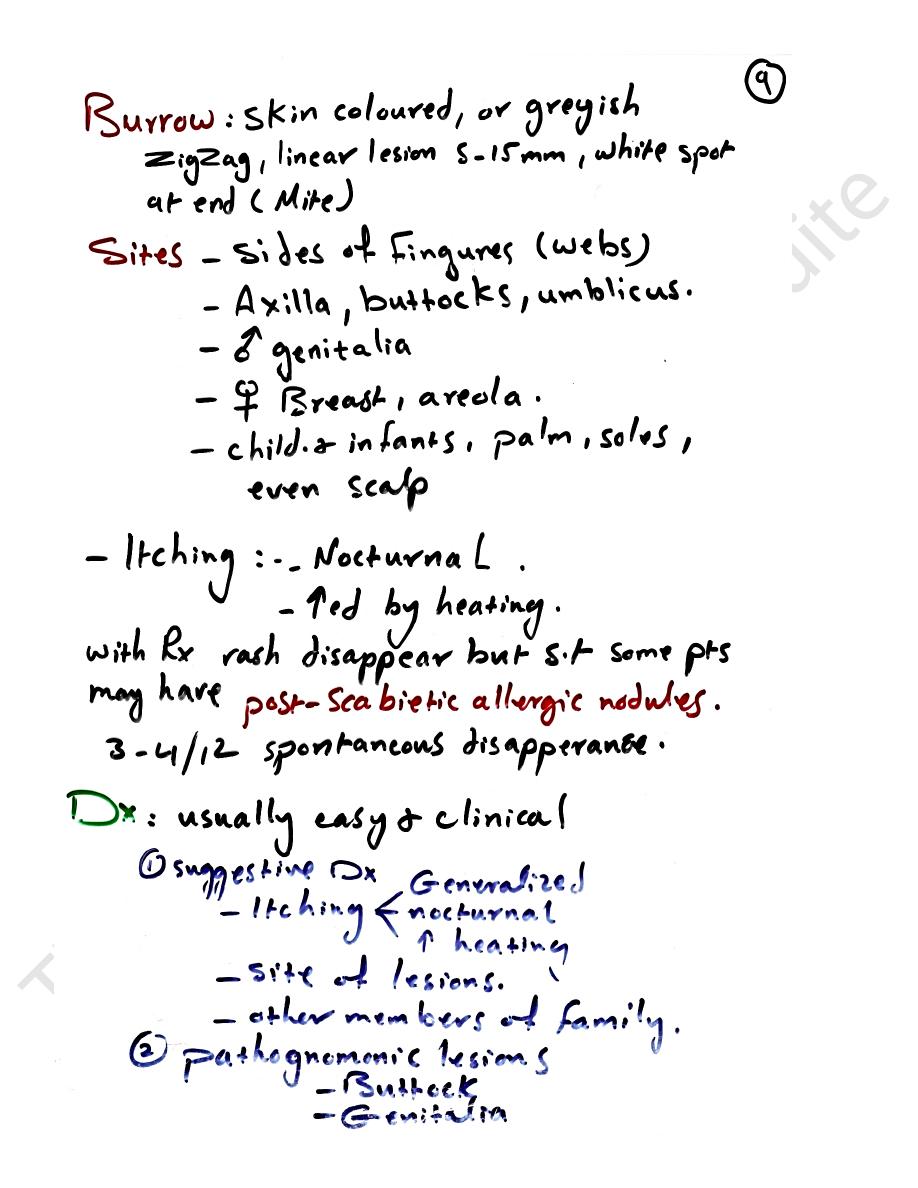 9
Burrow : Skin coloured, or greyish
ZigZag, linear lesion 5-15mm, white spot
at end (Mite)
Sites - Sides of Fingures (webs)
- Axilla, buttocks, umblicus.
- ♂ genitalia
- ♀ Breast, areola.
- child. & infants, palm, soles,
even scalp
- Itching :-- Nocturnal.
- ↑ed by heating.
with Rx rash disappear but s.t some pts
may have post-Scabietic allergic nodules.
3-4/12 spontaneous disapperance.
Dx : usually easy & clinical
① suggestive Dx
- Itching < Generalized
nocturnal
↑ heating
- site of lesions.
- other members of family.
② pathognomonic lesions
- Buttock
- Genitalia